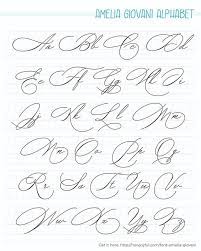 AMELIA GIOVANI ALPHABET
Aa Bb Cc Dd
Ee Ff Gg Hh Ii
Jj Kk Ll Mm
Nn Oo Pp Qq
Rr Ss Tt Uu Vv
Ww Xx Yy Zz